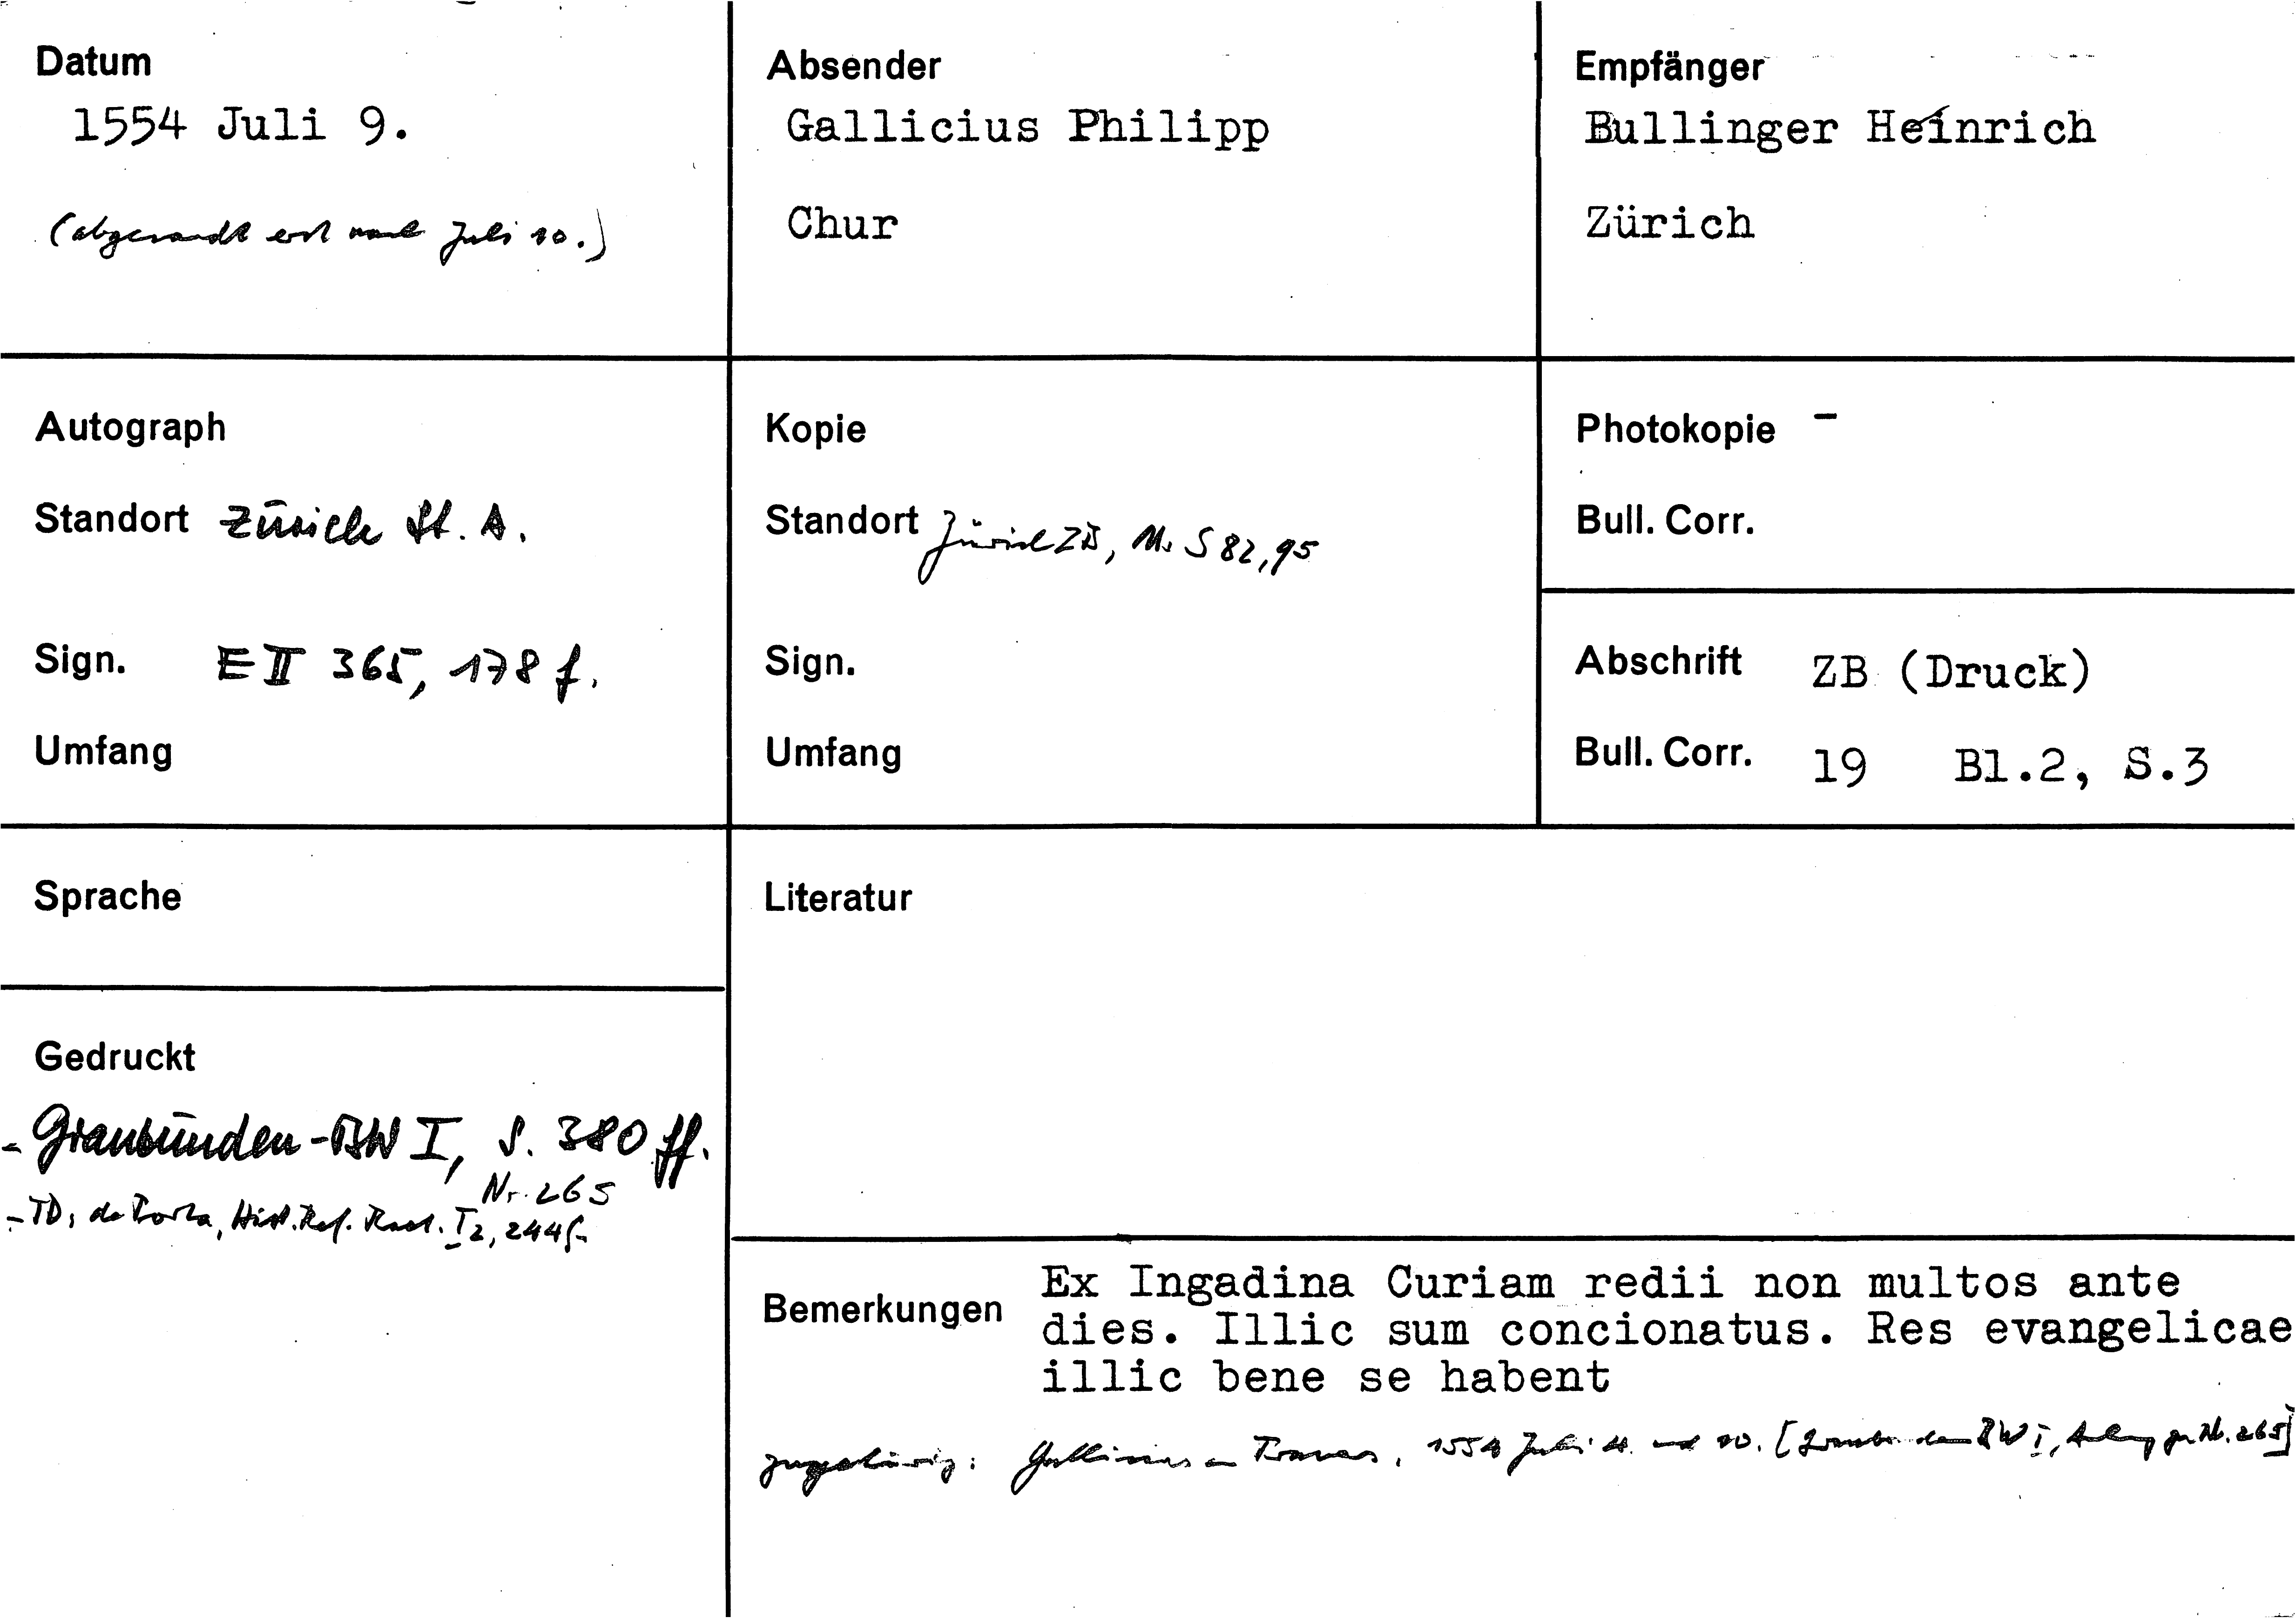 Datum
1554 Juli 9.
(abgesandt erst nach Juli 10.)
Absender
Gallicius Philipp
Chur
Empfänger
Bullinger Heinrich
Zürich
Autograph
Standort Zürich St. A.
Sign. E II 365, 178 f.
Umfang
Kopie
Standort Zürich ZB, Ms S 82, 95
Sign.
Umfang
Photokopie -
Bull. Corr.
Abschrift ZB (Druck)
Bull. Corr. 19 Bl.2, S.3
Sprache
Literatur
Gedruckt
- Graubünden-BW I, S. 380 ff.
Nr. 265
- TD: de Porta, Hist. Ref. Raet. I 2, 244 f.
Bemerkungen
Ex Ingadina Curiam redii non multos ante
dies. Illic sum concionatus. Res evangelicae
illic bene se habent
zugehörig: Gallicius an Travers, 1554 Juli und 10. [Graubünden BW I, zu Nr. 265]